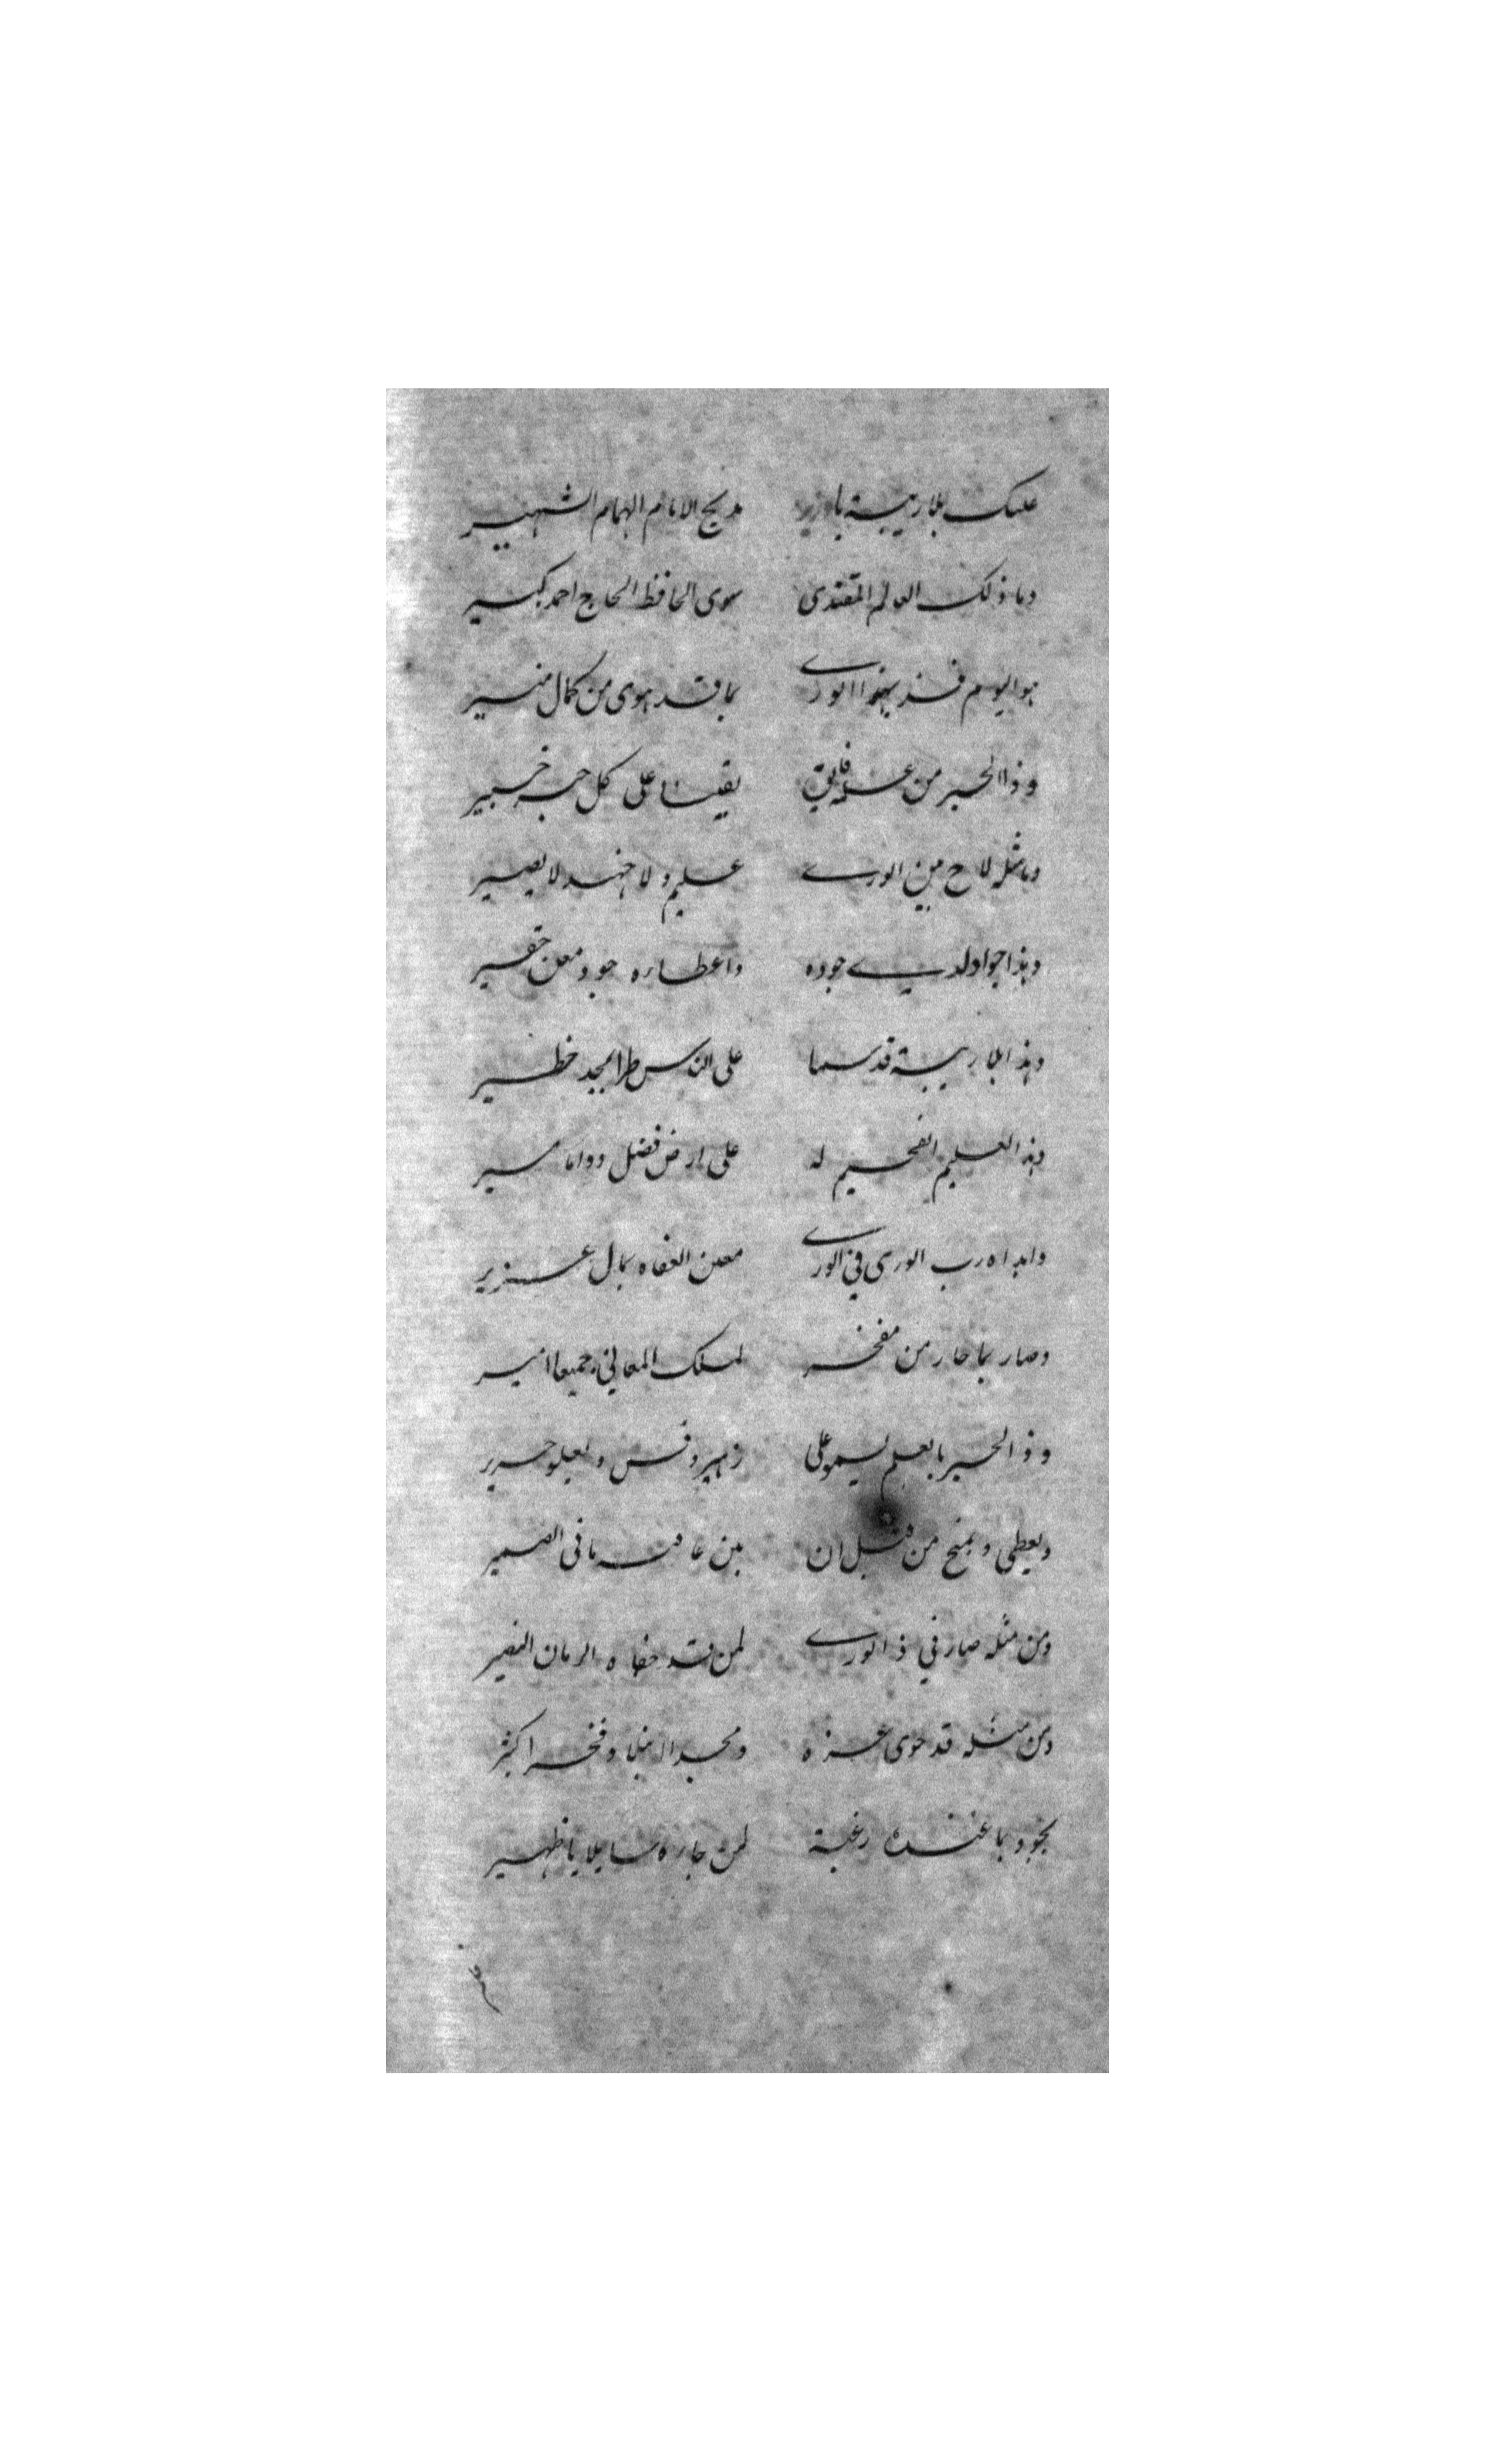 عليك بلا ريبة يا وزير مديح الامام الهمام الشهير
وما ذلك العالم المقتدى سوى الحافظ الحاج احمد كبير
هو اليوم فذ بهذا الورى بما قد حوى من كمال منير
وذا الحبر من عزه فايق يقينا على كل حبر خبير
وما مثله لاح بين الورى عليم ولا جهبذ لا بصير
وهذا جواد لدى جوده واعطاره جود معن حقير
وهذا بلا ريبة قد سما على الناس طرا بمجد خطير
وهذا العليم الفخيم له على ارض فضل دواما مسير
وابداه رب الورى في الورى معين العفاه بمال غزير
وصار بما حاز من مفخر لملك المعاني جميعا امير
وذا الحبر بالعلم يسمو على زهير وقس ويعلو جرير
ويعطى ويمنح من قبل ان يبن عافيه ما فى الضمير
ومن مثله صار في ذا الورى لمن قد جفاه الزمان النصير
ومن مثله قد حوى عزه ومجدا وفخرا كثير
يجود بما عنده رغبة لمن جاره سايلا يا ظهير